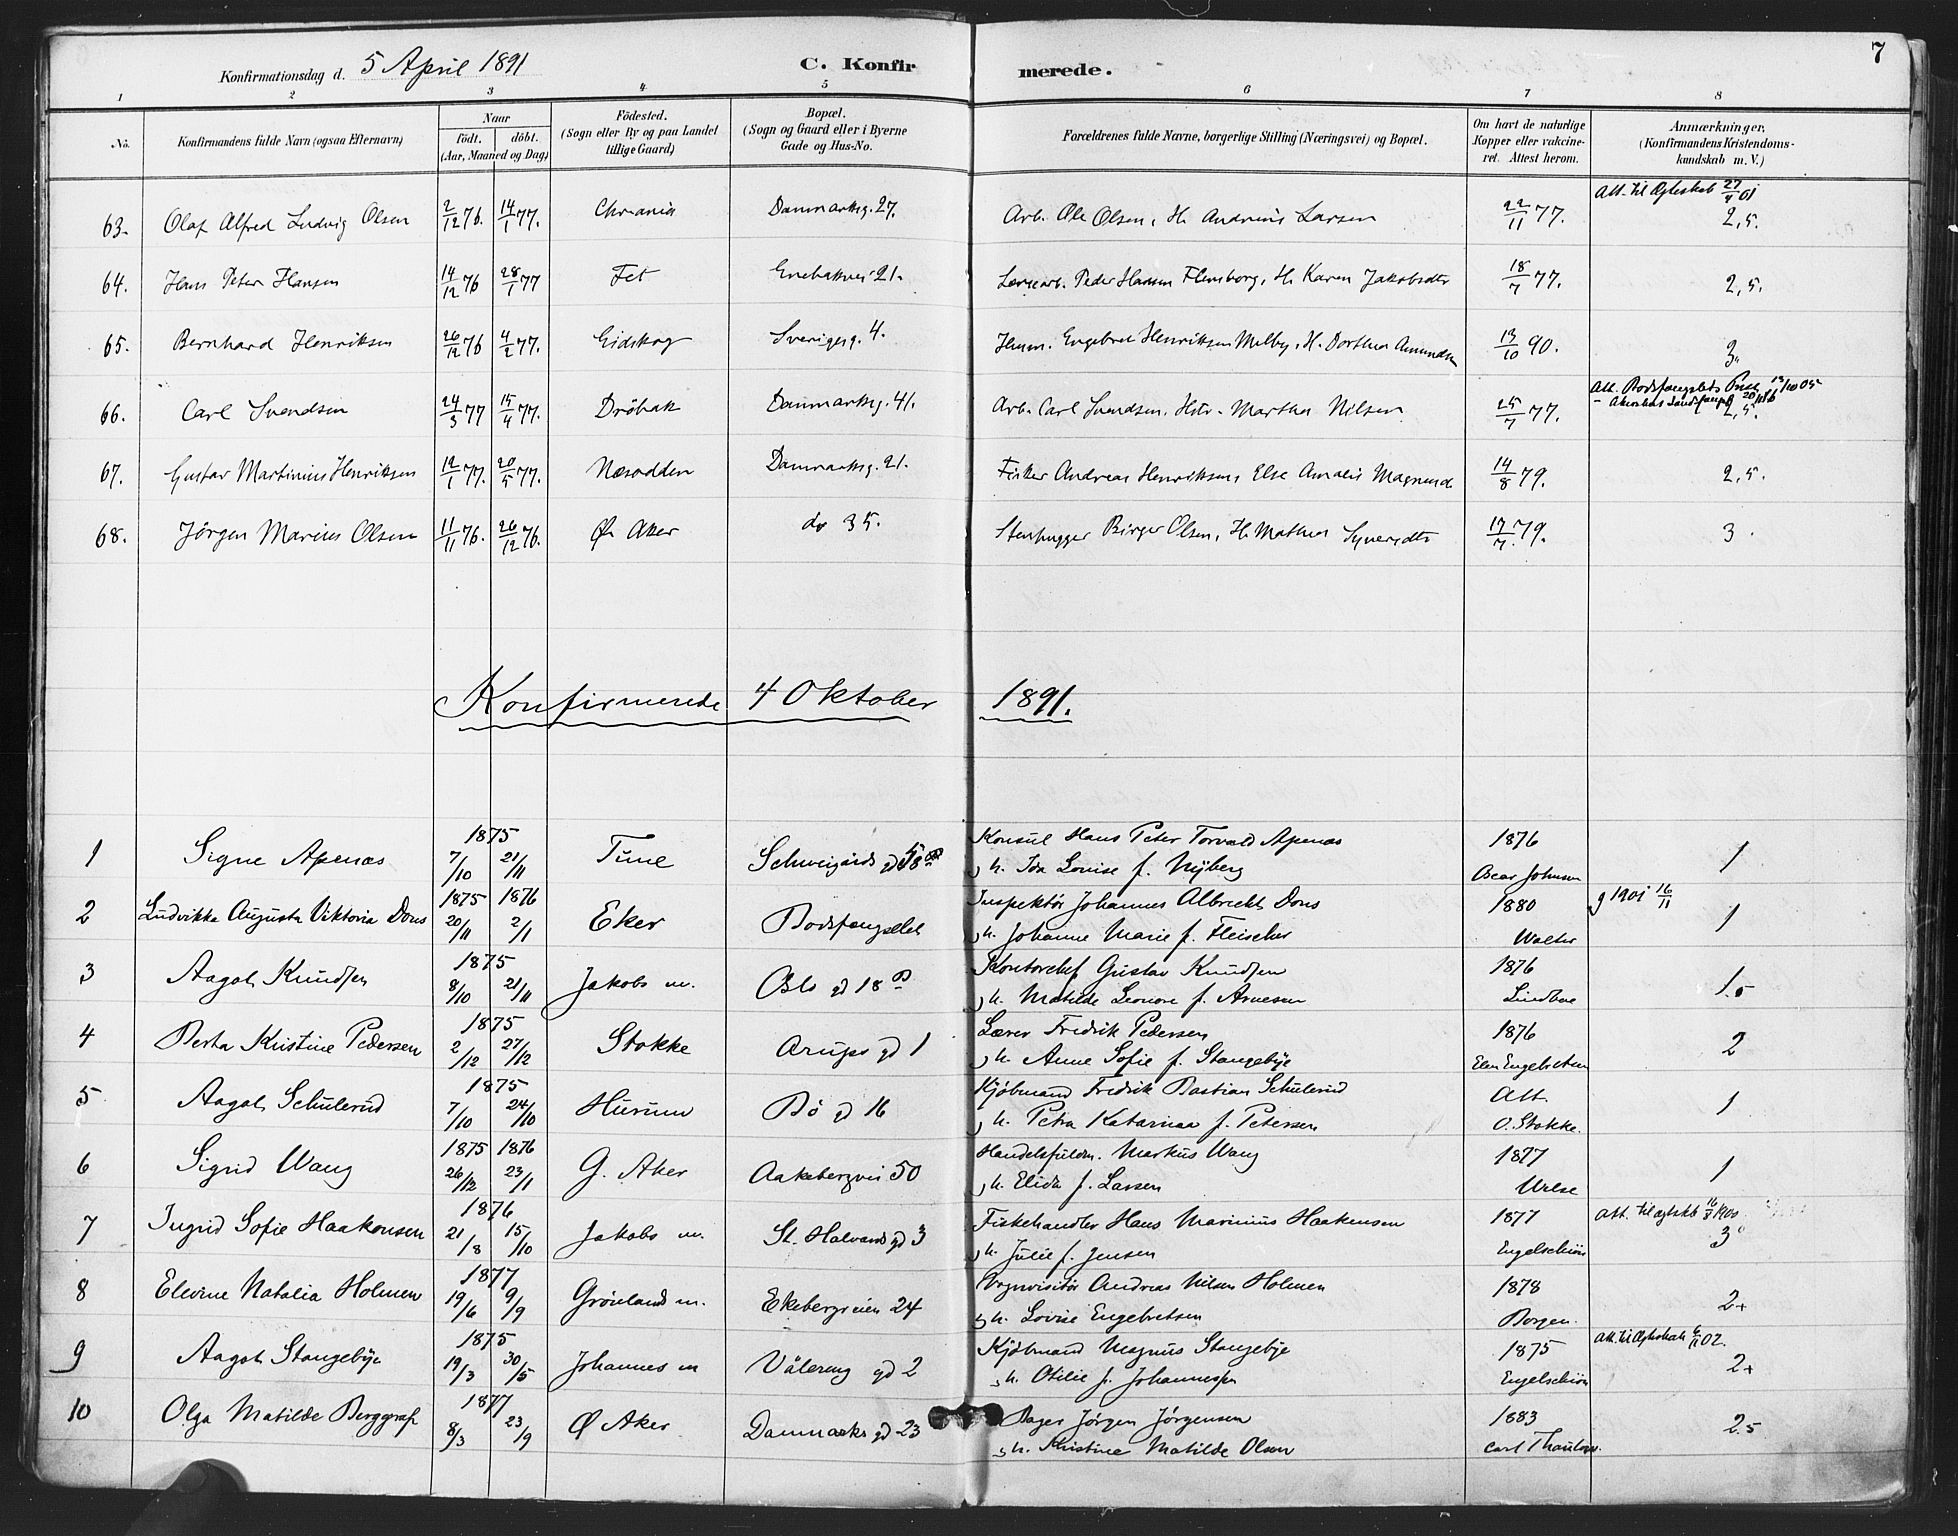 Konfirmationsdag d. 5 April 1891 C. Konfirmerede. 7
1 2 3 4 5 6 7 8
No. Konfirmandens fulde Navn (ogsaa Efternavn) Naar født. døbt. (Aar, Maaned og Dag) Födested. (Sogn eller By og paa Landet tillige Gaard) Bopæl. (Sogn og Gaard eller i Byerne Gade og Hus-No. Forældrenes fulde Navne, borgerlige Stilling (Næringsvei) og Bopæl. Om havt de naturlige Kopper eller vakcineret. Attest herom. Anmærkninger, (Konfirmandens Kristendomskundskab m. V.)
Att. til Ægteskab 27/4 01
63. Olaf Alfred Ludvig Olsen 2/12 76. 14/1 77. Chrania Danmarksg. 27. Arb. Ole Olsen, H. Andrine Larsen 22/11 77. 2,5.
64. Hans Peter Hansen 14/12 76 28/1 77 Fet Enebakvei 21. Peder Hansen Flensborg, H. Karen Jakobsdtr 18/7 77. 2,5.
65. Bernhard Henriksen 26/12 76 4/2 77. Eidskog Sverigesg. 4. Engebret Henriksen Melby, H. Dorthea Amundsen 13/10 90. 3.
Att. Bodsfængslets Præst 13/10 05
66. Carl Svendsen 24/3 77 15/4 77. Dröbak Danmarksg. 41. Arb. Carl Svendsen, Hstr. Martha Nilsen 25/7 77. 2,5.
67. Gustav Martinius Henriksen 12/1 77. 20/5 77. Næsodden Danmarksg. 21. Fisker Andreas Henriksen, Else Amalie Magnusd. 14/8 79. 2,5.
68. Jørgen Marius Olsen 11/11 76. 26/12 76. Ø. Aker do 35. Stenhugger Birger Olsen, H. Mathea Syversdtr 19/7 79. 3.
Konfirmerede 4 Oktober 1891.
1875 Konsul Hans Peter Torvald Apenæs 1876
1 Signe Apenæs 7/10 21/11 Tune Schweigårds gd h. Ida Louise f. Nyberg Oscar Johnsen 1
1875 1876 Inspektör Johannes Albrecht Dons 1880 g 1901 16/11
2 Ludvikka Augusta Viktoria Dons 20/11 2/1 Eker Bodsfængslet h. Johanne Marie f. Fleischer Walter 1
1875 Kontorchef Gustav Knudsen 1876
3 Aagot Knudsen 8/10 21/11 Jakobs m. Oslo gd 18 B h. Matilde Leonore f. Arnesen Lindboe 1.5
1875 Lærer Fredrik Pedersen 1876
4 Berta Kristine Pedersen 2/12 27/12 Stokke Arups gd 1 h. Anne Sofie f. Stangebye Elen Engebretsen 2
1875 Kjöbmand Fredrik Bastian Schulerud Att.
5 Aagot Schulerud 7/10 24/10 Hurum Bö gd 16 h. Petra Katarina f. Petersen O. Stokke. 1
1875 1876 Handelsfuldm. Markus Wang 1877
6 Sigrid Wang 26/12 23/1 G. Aker Aakebergvei 50 h. Elida f. Larsen 1
1876 Fiskehandler Hans Marinius Haakensen 1877 Att. til ægtskb 16/3 1900
7 Ingrid Sofie Haakonsen 21/8 15/10 Jakobs m. St. Halvards gd 3 h. Julie f. Jensen Engelschiön 3
1877 Vognvisitör Andreas Nilsen Holmen 1878
8 Elevine Natalia Holmen 19/6 9/9 Grönlands m. Ekebergveien 24 h. Lovise Engebretsen Borgen. 2+
1875 Kjöbmand Magnus Stangebye 1875 Att. til Ægteskab 6/11 02.
9 Aagot Stangebye 19/3 30/5 Johannes m Välereng gd 2 h. Otilie f. Johannesen Engelschiön 2+
1877 Bager Jörgen Jörgensen 1883
10 Olga Matilde Berggraf 8/3 23/9 Ø Aker Danmarks gd 23 h. Kristine Matilde Olsen Carl Thaulow. 2.5